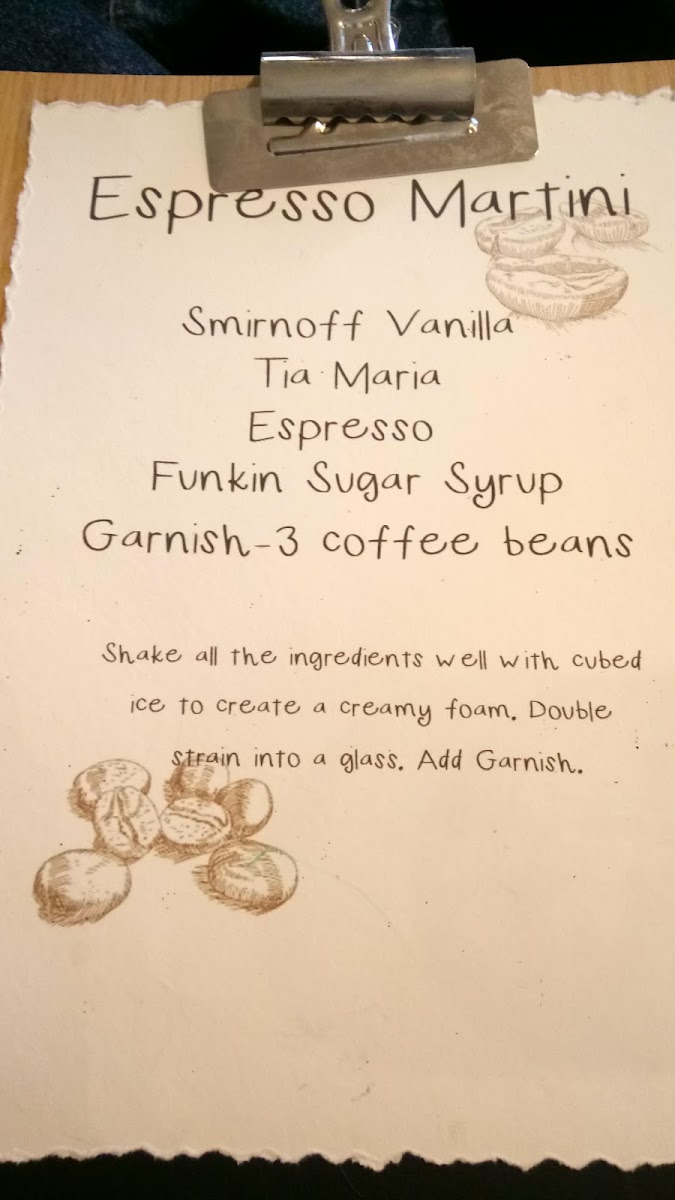 Espresso Martini
Smirnoff Vanilla
Tia Maria
Espresso
Funkin Sugar Syrup
Garnish-3 coffee beans
Shake all the ingredients well with cubed
ice to create a creamy foam. Double
strain into a glass. Add Garnish.